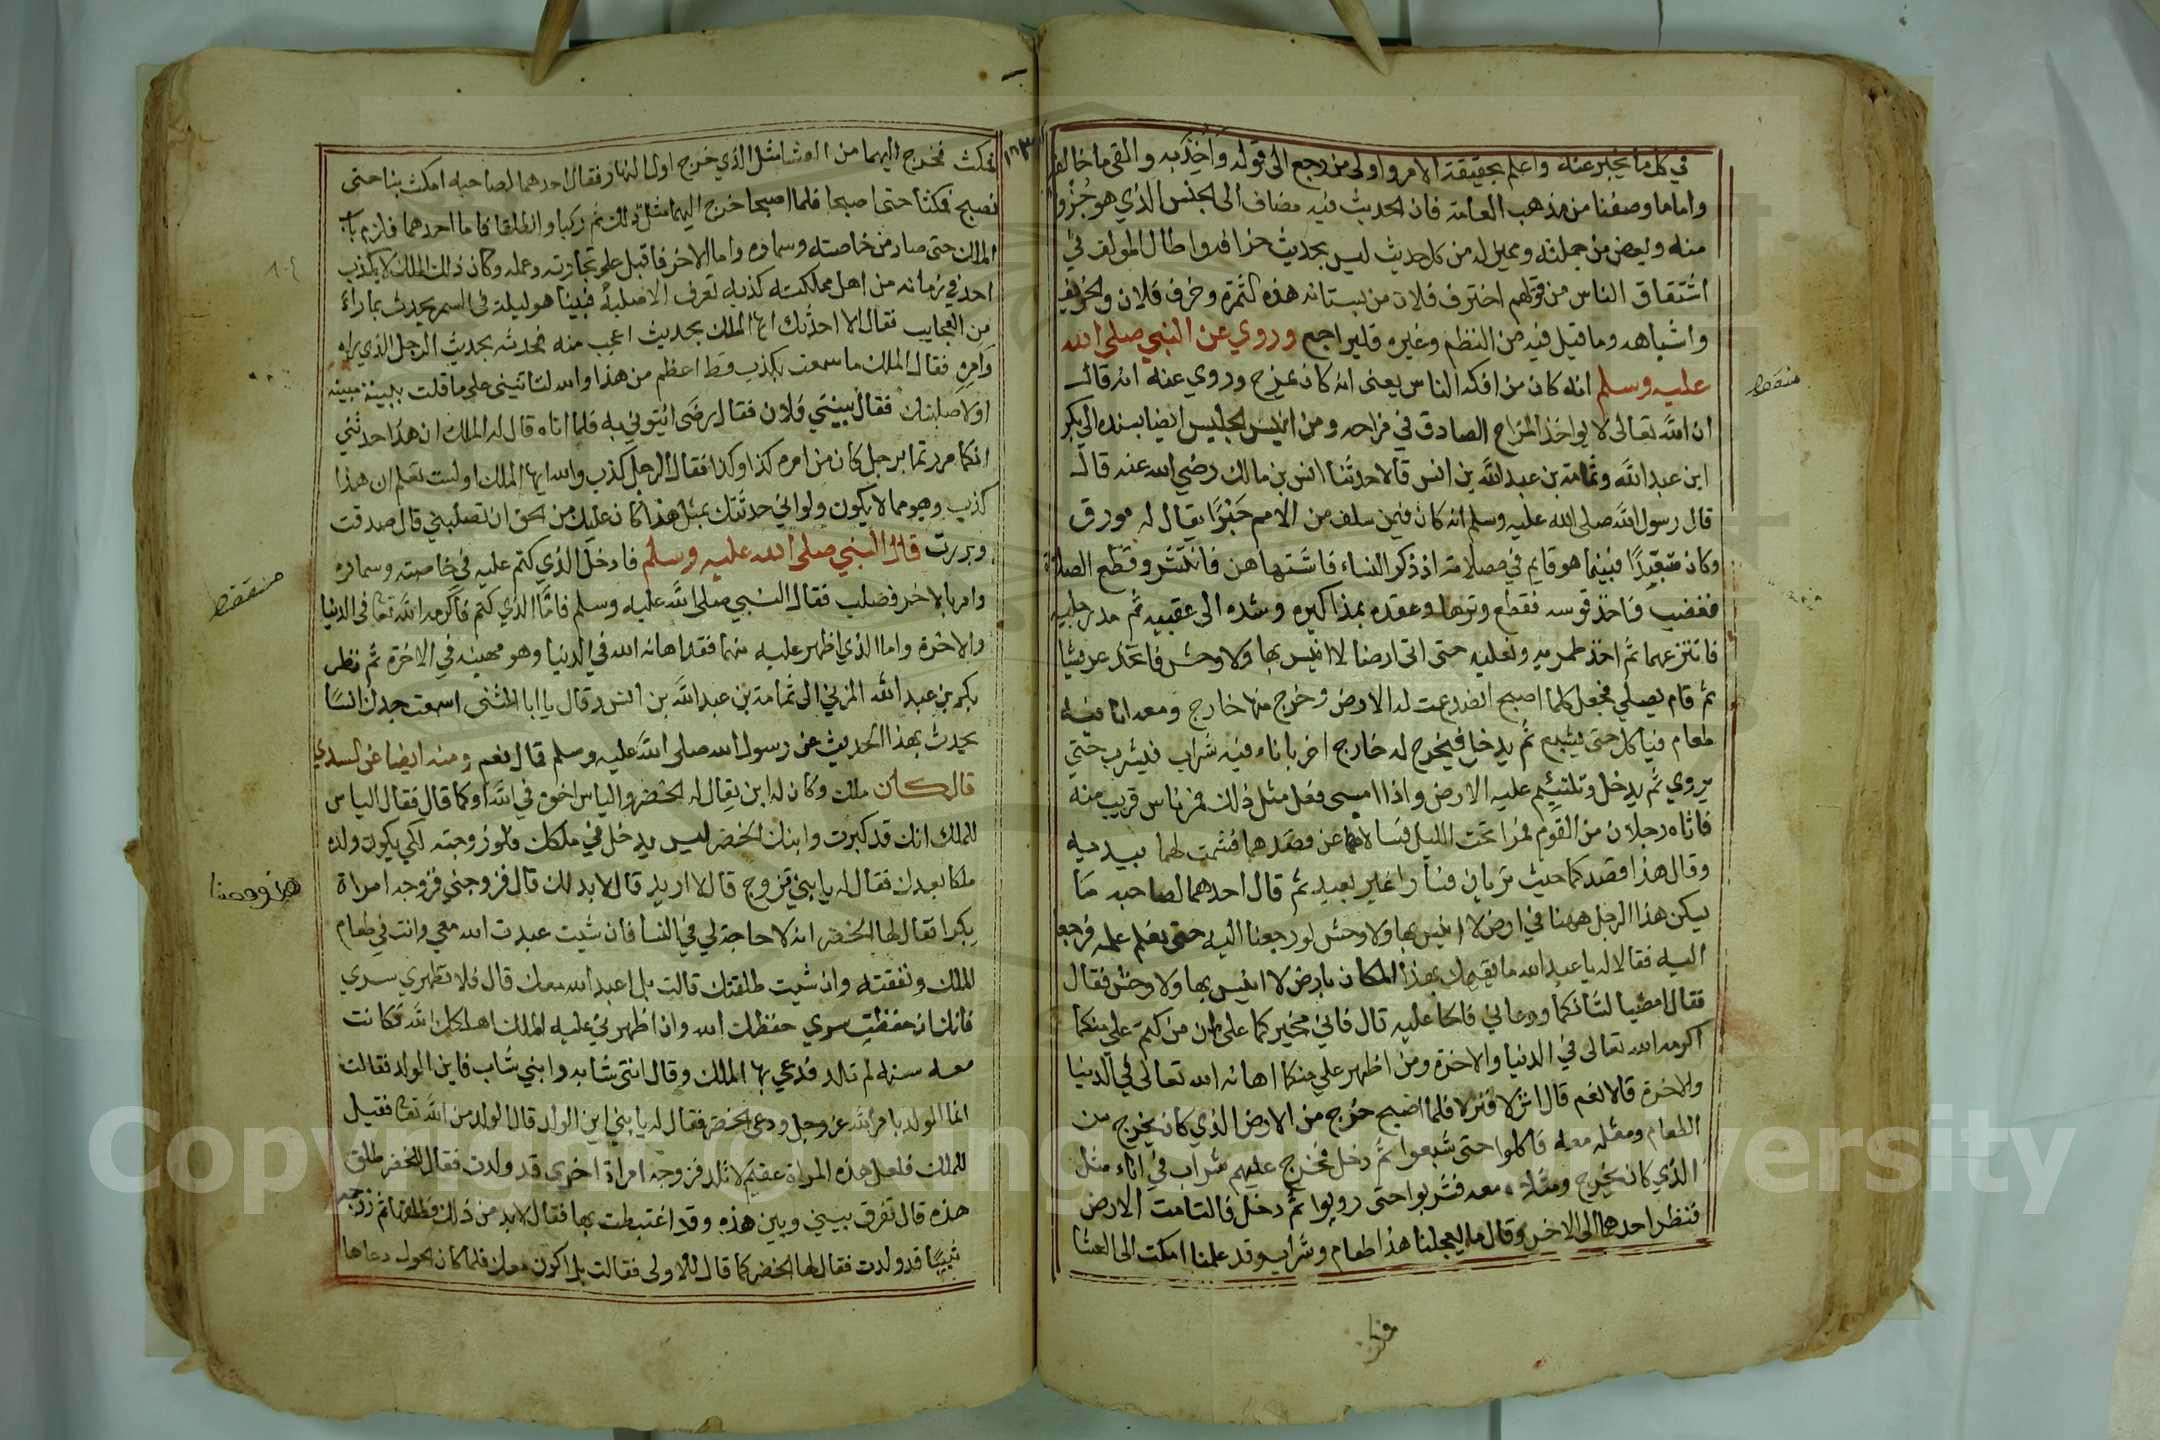 في كل ما يخبر عنه واعلم بحقيقة الامر واولى من رجع الى قوله وأُخِذَ به والقي ما خالفه
واما ما وصفنا من مذهب العامة فان الحديث فيه مضاف الى الجنس الذي هو جُزْو
منه وبعض من جملته ومميز له من كل حديث ليس بحديث خرافه واطال المولف في
اشتقاق الناس من قولهم اخترف فلان من بستانه هذه الثمرة وخرف فلان والخريف
واشباهه وما قيل فيه من النظم وغيره فليراجع وروي عن النبي صلى الله
عليه وسلم انه كان من افكه الناس يعنى انه كان يمزح وروي عنه انه قال
ان الله تعالى لا يواخذ المزاح الصادق في مزاحه ومن انيس الجليس ايضا بسنده الى بكر
ابن عبد الله وثمامة بن عبد الله بن انس قالا حدثنا انس بن مالك رضي الله عنه قال
قال رسول الله صلى الله عليه وسلم انه كان فيمن سلف من الامم حَبْرًا يقال له مورق
وكان متعبّدًا فبينما هو قايم في صلاته اذ ذكر النساء فاشتهاهن فانتشر وقطع الصلاة
فغضب فاخذ قوسه فقطع وترها وعقده بمذاكيره وشده الى عقبيه ثم مد رجليه
فانتزعهما ثم اخذ طمريه ونعليه حتى اتى ارضا لا انيس بها ولا وحش فاتخذ عريشا
ثم قام يصلي فجعل كلما اصبح انصدعت له الارض وخرج منها خارج ومعه انا فيه
طعام فياكل حتى يشبع ثم يدخل فيخرج له خارج اخر باناء فيه شراب فيشرب حتي
يروي ثم يدخل وتلتيئم عليه الارض واذا امسى فعل مثل ذلك فمر ناس قريب منه
فاتاه رجلان من القوم فمرا تحت الليل فسالاه عن قصدهما فشمت لهما بيديه
وقال هذا قصدكما حيث تريدان فسارا غير بعيد ثم قال احدهما لصاحبه ما
يسكن هذا الرجل ههنا في ارض لا انيس بها ولا وحش لو رجعنا اليه حتى نعلم علمه فرجعا
اليه فقالا له يا عبد الله ما يقيمك بهذا المكان بارض لا انيس بها ولا وحش فقال
فقال امضيا لشانكما ودعاني فالحا عليه قال فاني مخبركما على ان من كتم علي منكما
اكرمه الله تعالى في الدنيا والاخرة ومن اظهر علي منكما اهانه الله تعالى في الدنيا
والاخرة قالا نعم قال انزلا فنزلا فلما اصبح خرج من الارض الذي كان يخرج من
الطعام ومثله معه فاكلوا حتى شبعوا ثم دخل فخرج عليهم شراب في اناء مثل
الذي كان يخرج ومثله معه فشربوا حتى رويوا ثم دخل فالتامت الارض
فنظر احدهما الى الاخر وقال ما يعجلنا هذا طعام وشراب وقد علمنا امكث الى العشا
منقطه
فمكث
١٦٣
فمكث فخرج اليهما من العشا مثل الذي خرج اول النهار فقال احدهما لصاحبه امكث بنا حتى
نصبح فمكثا حتى اصبحا فلما اصبحا خرج اليهما مثل ذلك ثم ركبا وانطلقا فاما احدهما فلزم باب
الملك حتى صار من خاصته وسماره واما الاخر فاقبل على تجارته وعمله وكان ذلك الملك لا يكذب
احد في زمانه من اهل مملكته كذبه تعرف الا صلبه فبينا هو ليلة في السمر يحدث بما راء
من العجايب فقال الا احدثك ايها الملك بحديث اعجب منه فحدثه بحديث الرجل الذي راه
وامره فقال الملك ما سمعت بكذب قط اعظم من هذا والله لتاتيني على ما قلت ببينة مبينه
او لاصلبنك فقال بينتي فلان فقال رضى ائتوني به فلما اتاه قال له الملك ان هذا حدثني
انكما مررتما برجل كان من امره كذا وكذا فقال الرجل كذب والله ايها الملك اولست تعلم ان هذا
كذب وهو مما لا يكون ولو اني حدثتك بمثل هذا كان عليك من الحق ان تصلبني قال صدقت
وبررت قال النبي صلى الله عليه وسلم فادخل الذي كتم عليه في خاصته وسماره
وامر بالاخر فصلب فقال النبي صلى الله عليه وسلم فاما الذي كتم فاكرمه الله تعا في الدنيا
والاخرة واما الذي اظهر عليه منهما فقد اهانه الله في الدنيا وهو مهينه في الاخرة ثم نظر
بكر بن عبد الله المزني الى ثمامة بن عبد الله بن انس وقال يا ابا المثنى اسمعت جدك انسا
يحدث بهذا الحديث عن رسول الله صلى الله عليه وسلم قال نعم ومنه ايضا عن السدي
قال كان ملك وكان له ابن يقال له الخضر والياس اخوه في الله او كما قال فقال الياس
للملك انك قد كبرت وابنك الخضر ليس يدخل في ملكك فلو زوجته لكي يكون ولده
ملكا بعدك فقال له يا بني تزوج قال لا اريد قال لا بد لك قال فزوجني فزوجه امراة
بكرا تقال لها الخضر انه لا حاجة لي في النسا فان شيت عبدت الله معي وانت في طعام
الملك ونفقته وان شيت طلقتك قالت بل اعبد الله معك قال فلا تظهري سري
فانك ان حفظتِ سري حفظك الله وان اظهرتي عليه الملك اهلكك الله فكانت
معه سنه لم تلد فدعي بها الملك وقال انتي شابه وابني شاب فاين الولد فقالت
انما الولد بامر الله عز وجل ودعى الخضر فقال له يا بني اين الولد قال الولد من الله تعا فقيل
للملك فلعل هذه المراة عقيم لا تلد فزوجه امراة اخرى قد ولدت فقال للخضر طلق
هذه قال تفرق بيني وبين هذه وقد اغتبطت بها فقال لا بد من ذلك فطلقها ثم زوجه
ثيبًا قد ولدت فقال لها الخضر كما قال للاولى فقالت بل اكون معك فلما كان الحول دعاها
منقطه
Copyright © King Saud University